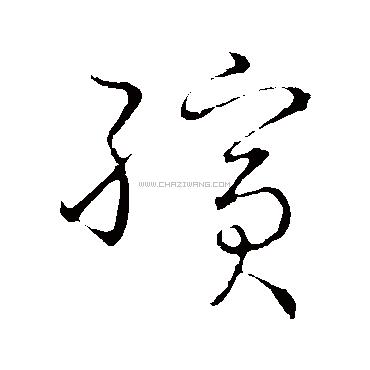 繽
www.chaziwang.com